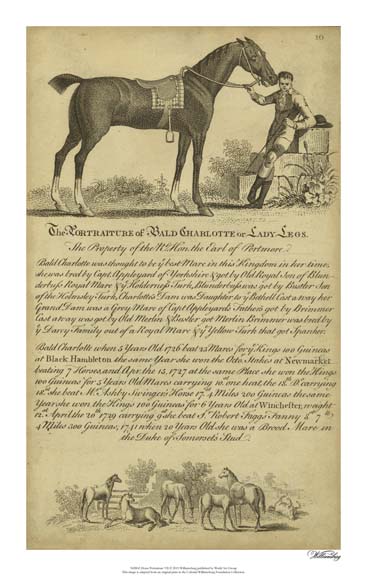 16
The Portraiture of Bald Charlotte or Lady Legs.
The Property of the Rt. Hon. the Earl of Portmore.
Bald Charlotte was thought to be ye best Mare in this Kingdom in her time;
she was bred by Capt. Appleyard of Yorkshire & got by Old Royal Son of Blun-
derbuss Royal Mare & ye Holderness Turk, Blunderbuss was got by Bustler Son
of the Helmsley Turk, Charlotte's Dam was Daughter to ye Bethell Cast away her
Grand Dam was a Grey Mare of Capt. Appleyard Fathers got by Brimmer
Cast away was got by Old Merlin & Bustler got Merlin Brimmer was bred by
ye Darcy Family out of a Royal Mare & ye Yellow Turk that got Spanker.
Bald Charlotte when 5 Years Old 1726 beat 23 Mares for ye Kings 100 Guineas
at Black Hambleton the same Year she won the Octr. Stakes at Newmarket
beating 7 Horses, and Apr. the 15. 1727 at the same Place she won the Kings
100 Guineas for 5 Years Old Mares carrying 10. one heat, the 18th. Do. carrying
18st. she beat Mr. Ashby Swinger's Horse 17. 4 Miles 200 Guineas the same
Year she won the Kings 100 Guineas for 6 Years Old at Winchester, weight
12st. April the 20th 1729 carrying 9st she beat Sr. Robert Faggs Fanny 8st 7lb
4 Miles 300 Guineas, 1741 when 20 Years Old she was a Brood Mare in
the Duke of Somersets Stud.
Williamsburg